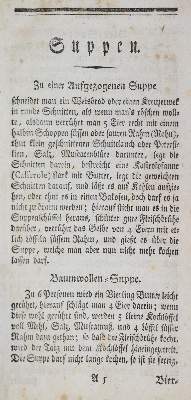 Suppen.
Zu einer Aufgezogenen Suppe
schneidet man ein Weisbrod oder einen Kreutzerweck
in runde Schnitten, als wenn man's röschen woll-
te, alsdann verrührt man 5 Eier recht mit einem
halben Schoppen süssen oder sauren Rahm (Rohm),
thut klein geschnittenen Schnittlauch oder Petersi-
lien, Salz, Muskatenblüte darunter, legt die
Schnitten darein, bestreicht eine Kastrolpfanne
(Casserole) stark mit Butter, legt die geweichten
Schnitten darauf, und läßt es auf Kohlen aufzie-
hen, oder thut es in einen Bakofen, doch darf es ja
nicht zu dürr werden; hierauf stürzt man es in die
Suppenschüssel heraus, schüttet gute Fleischbrühe
darüber, verrührt das Gelbe von 4 Eiern mit et-
lich Löffeln süssen Rahm, und gießt es über die
Suppe, welche man aber nun nicht mehr kochen
lassen darf.
Baumwollen-Suppe.
Zu 6 Personen wird ein Vierling Butter leicht
gerührt, hierauf schlägt man 4 Eier darein; wenn
diese wohl gerührt sind, werden 5 kleine Kochlöffel
voll Mehl, Salz, Muskatnuß, und 4 Löffel süsser
Rahm daran gethan; so bald die Fleischbrühe kocht,
wird der Taig mit dem Kochlöffel hineingezettelt.
Die Suppe darf nicht lange kochen, so ist sie fertig.
A 5
Bier-